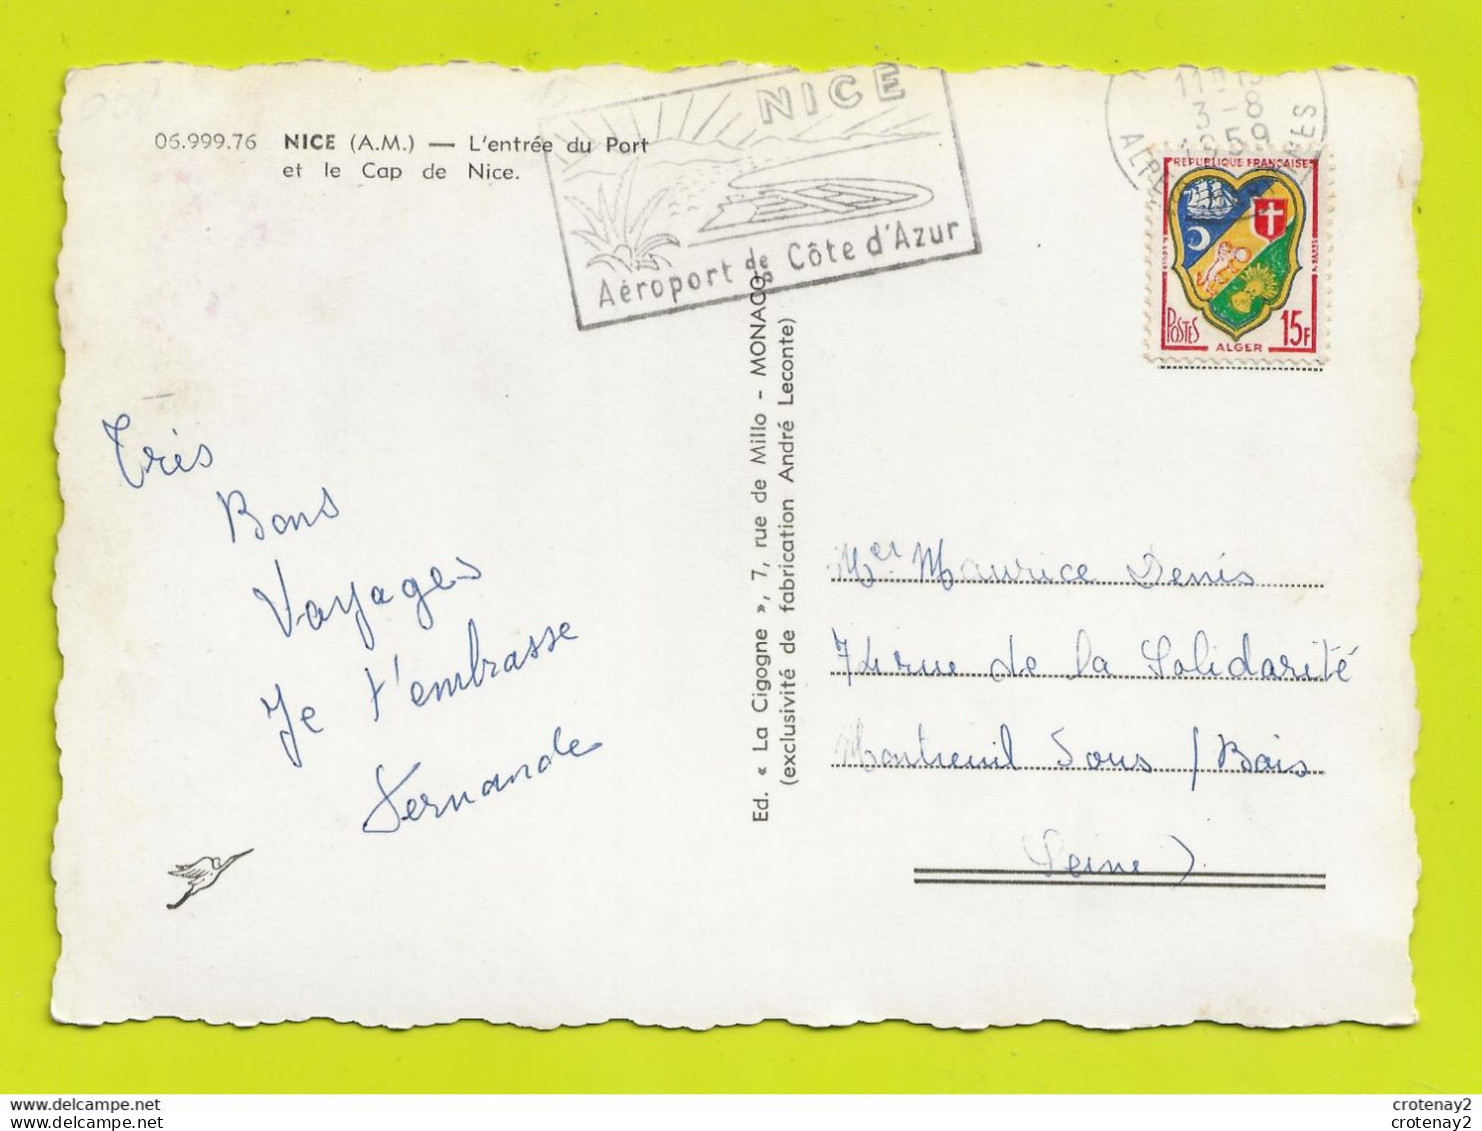 06.999.76 NICE (A.M.) — L'entrée du Port
et le Cap de Nice.
NICE
Aéroport de la Côte d'Azur
3-8
1959
REPUBLIQUE FRANÇAISE
POSTES 15F
ALGER
Très
Bons
Voyages
Je t'embrasse
Fernande
Ed. « La Cigogne », 7, rue de Millo - MONACO
(exclusivité de fabrication André Leconte)
Mer Maurice Denis
74 rue de la Solidarité
Montreuil Sous / Bois
Seine)
crotenay2
crotenay2
www.delcampe.net
www.delcampe.net